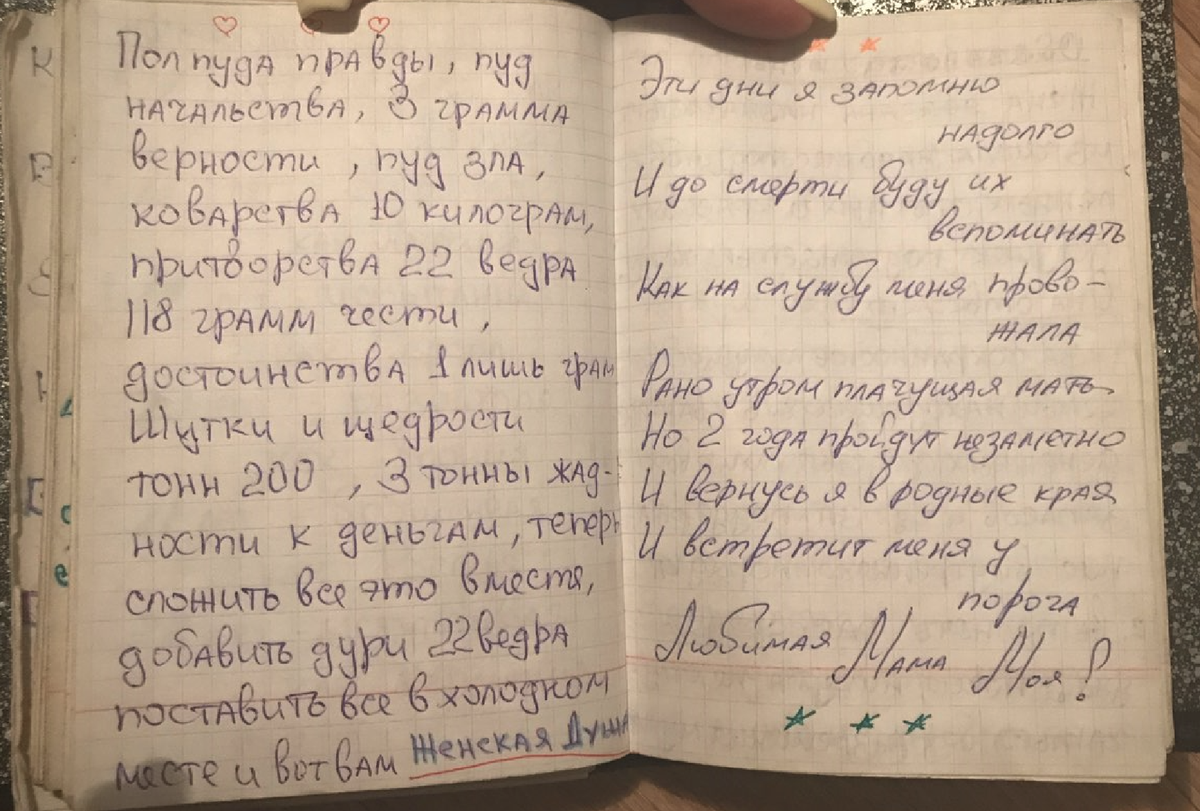 Пол пуда правды, пуд
начальства, 3 грамма
верности, пуд зла,
коварства 10 килограм,
притворства 22 ведра
118 грамм чести,
достоинства 1 лишь грам
Шутки и щедрости
тонн 200, 3 тонны жад-
ности к деньгам, теперь
сложить все это вместя,
добавить дури 22 ведра
поставить все в холодном
месте и вот вам Женская Душа
Эти дни я запомню
надолго
И до смерти буду их
вспоминать
Как на службу меня прово-
жала
Рано утром плачущая мать
Но 2 года пройдут незаметно
И вернусь я в родные края
И встретит меня у
порога
Любимая Мама Моя!